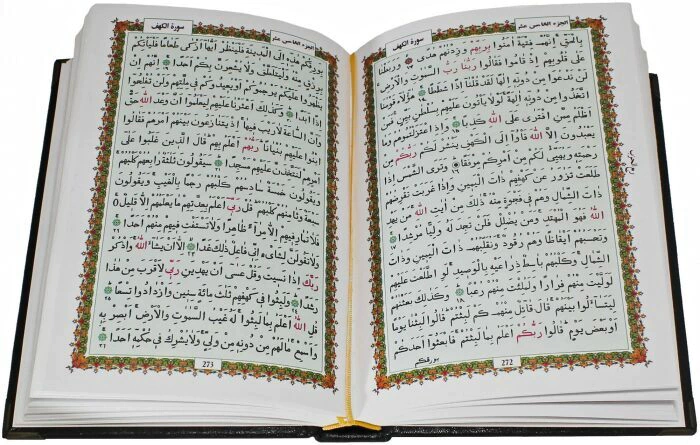 الجزء الخامس عشر
سورة الكهف
بِالْحَقِّ إِنَّهُمْ فِتْيَةٌ آمَنُوا بِرَبِّهِمْ وَزِدْنٰهُمْ هُدًى ١٣ وَرَبَطْنَا
عَلَى قُلُوبِهِمْ إِذْ قَامُوا فَقَالُوا رَبُّنَا رَبُّ السَّمٰوٰتِ وَالْأَرْضِ
لَنْ نَدْعُوَا مِنْ دُونِهِ إِلٰهًا لَقَدْ قُلْنَا إِذًا شَطَطًا ١٤ هٰؤُلَاءِ قَوْمُنَا
اتَّخَذُوا مِنْ دُونِهِ آلِهَةً لَوْلَا يَأْتُونَ عَلَيْهِمْ بِسُلْطٰنٍ بَيِّنٍ فَمَنْ
أَظْلَمُ مِمَّنِ افْتَرَى عَلَى اللّٰهِ كَذِبًا ١٥ وَإِذِ اعْتَزَلْتُمُوهُمْ وَمَا
يَعْبُدُونَ إِلَّا اللّٰهَ فَأْوُوا إِلَى الْكَهْفِ يَنْشُرْ لَكُمْ رَبُّكُمْ مِنْ
رَحْمَتِهِ وَيُهَيِّئْ لَكُمْ مِنْ أَمْرِكُمْ مِرْفَقًا ١٦ وَتَرَى الشَّمْسَ إِذَا
طَلَعَتْ تَزٰوَرُ عَنْ كَهْفِهِمْ ذَاتَ الْيَمِينِ وَإِذَا غَرَبَتْ تَقْرِضُهُمْ
ذَاتَ الشِّمَالِ وَهُمْ فِي فَجْوَةٍ مِنْهُ ذٰلِكَ مِنْ آيٰتِ اللّٰهِ مَنْ يَهْدِ
اللّٰهُ فَهُوَ الْمُهْتَدِ وَمَنْ يُضْلِلْ فَلَنْ تَجِدَ لَهُ وَلِيًّا مُرْشِدًا ١٧
وَتَحْسَبُهُمْ أَيْقَاظًا وَهُمْ رُقُودٌ وَنُقَلِّبُهُمْ ذَاتَ الْيَمِينِ وَذَاتَ
الشِّمَالِ وَكَلْبُهُمْ بٰسِطٌ ذِرَاعَيْهِ بِالْوَصِيدِ لَوِ اطَّلَعْتَ عَلَيْهِمْ
لَوَلَّيْتَ مِنْهُمْ فِرَارًا وَلَمُلِئْتَ مِنْهُمْ رُعْبًا ١٨ وَكَذٰلِكَ بَعَثْنٰهُمْ
لِيَتَسَاءَلُوا بَيْنَهُمْ قَالَ قَائِلٌ مِنْهُمْ كَمْ لَبِثْتُمْ قَالُوا لَبِثْنَا يَوْمًا
أَوْ بَعْضَ يَوْمٍ قَالُوا رَبُّكُمْ أَعْلَمُ بِمَا لَبِثْتُمْ فَابْعَثُوا أَحَدَكُمْ
بورقكم
272
الجزء الخامس عشر
سورة الكهف
بِوَرِقِكُمْ هٰذِهِ إِلَى الْمَدِينَةِ فَلْيَنْظُرْ أَيُّهَا أَزْكَى طَعَامًا فَلْيَأْتِكُمْ
بِرِزْقٍ مِنْهُ وَلْيَتَلَطَّفْ وَلَا يُشْعِرَنَّ بِكُمْ أَحَدًا ١٩ إِنَّهُمْ إِنْ
يَظْهَرُوا عَلَيْكُمْ يَرْجُمُوكُمْ أَوْ يُعِيدُوكُمْ فِي مِلَّتِهِمْ وَلَنْ تُفْلِحُوا
إِذًا أَبَدًا ٢٠ وَكَذٰلِكَ أَعْثَرْنَا عَلَيْهِمْ لِيَعْلَمُوا أَنَّ وَعْدَ اللّٰهِ حَقٌّ
وَأَنَّ السَّاعَةَ لَا رَيْبَ فِيهَا إِذْ يَتَنٰزَعُونَ بَيْنَهُمْ أَمْرَهُمْ فَقَالُوا
ابْنُوا عَلَيْهِمْ بُنْيٰنًا رَبُّهُمْ أَعْلَمُ بِهِمْ قَالَ الَّذِينَ غَلَبُوا عَلَى
أَمْرِهِمْ لَنَتَّخِذَنَّ عَلَيْهِمْ مَسْجِدًا ٢١ سَيَقُولُونَ ثَلٰثَةٌ رَابِعُهُمْ كَلْبُهُمْ
وَيَقُولُونَ خَمْسَةٌ سَادِسُهُمْ كَلْبُهُمْ رَجْمًا بِالْغَيْبِ وَيَقُولُونَ
سَبْعَةٌ وَثَامِنُهُمْ كَلْبُهُمْ قُلْ رَبِّي أَعْلَمُ بِعِدَّتِهِمْ مَا يَعْلَمُهُمْ إِلَّا قَلِيلٌ
فَلَا تُمَارِ فِيهِمْ إِلَّا مِرَاءً ظَاهِرًا وَلَا تَسْتَفْتِ فِيهِمْ مِنْهُمْ أَحَدًا ٢٢
وَلَا تَقُولَنَّ لِشَايْءٍ إِنِّي فَاعِلٌ ذٰلِكَ غَدًا ٢٣ إِلَّا أَنْ يَشَاءَ اللّٰهُ وَاذْكُرْ
رَبَّكَ إِذَا نَسِيتَ وَقُلْ عَسَى أَنْ يَهْدِيَنِ رَبِّي لِأَقْرَبَ مِنْ هٰذَا
رَشَدًا ٢٤ وَلَبِثُوا فِي كَهْفِهِمْ ثَلٰثَ مِائَةٍ سِنِينَ وَازْدَادُوا تِسْعًا ٢٥
قُلِ اللّٰهُ أَعْلَمُ بِمَا لَبِثُوا لَهُ غَيْبُ السَّمٰوٰتِ وَالْأَرْضِ أَبْصِرْ بِهِ
وَأَسْمِعْ مَا لَهُمْ مِنْ دُونِهِ مِنْ وَلِيٍّ وَلَا يُشْرِكُ فِي حُكْمِهِ أَحَدًا ٢٦
273